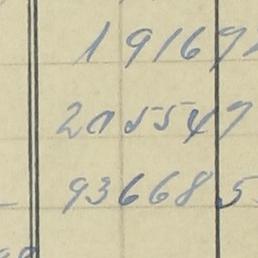 19169
205549
936685